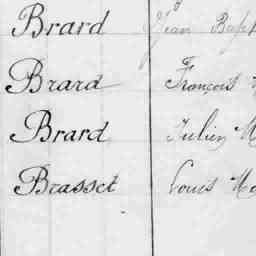 Brard Jean Bapt
Brard François
Brard Julien M
Brasset Louis Ma